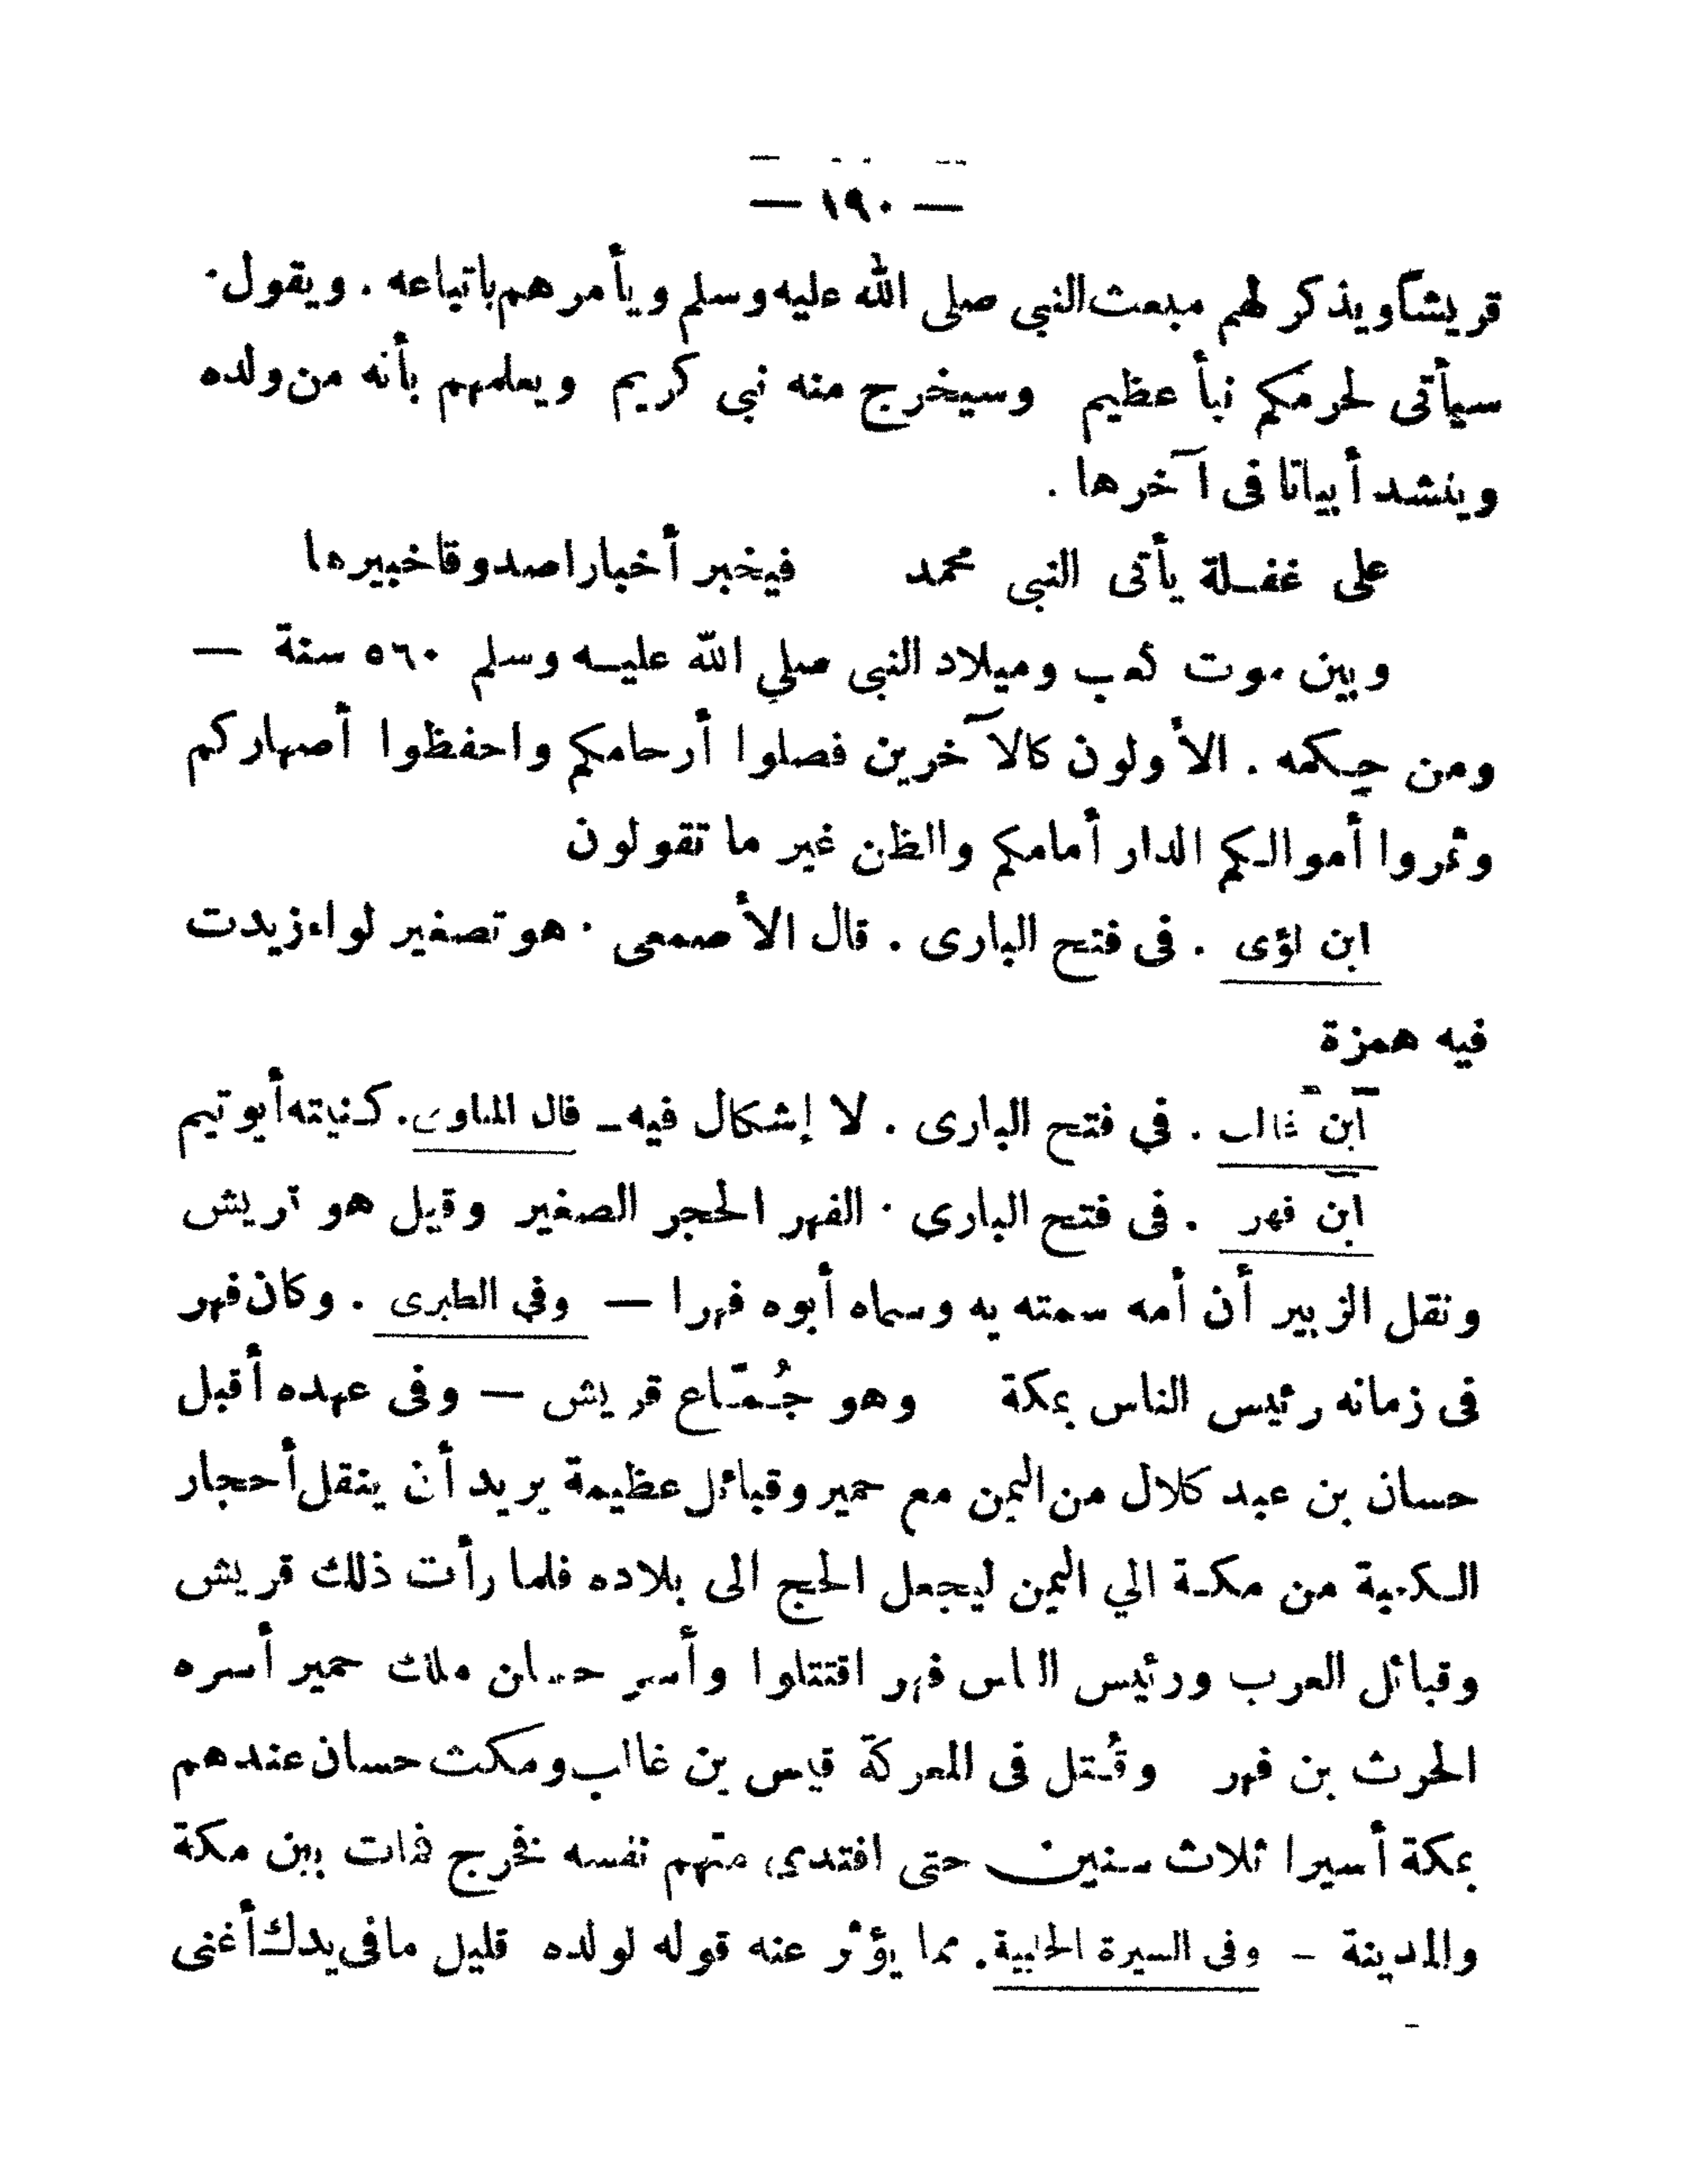 — ١٩٠ —
قريشا ويذكر لهم مبعث النبى صلى الله عليه وسلم ويأمرهم باتباعه . ويقول .
سيأتى لحرمكم نبأ عظيم وسيخرج منه نبى كريم ويعلمهم بأنه من ولده
وينشد أبياتا فى آخرها .
على غفـلة يأتى النبى محمد فيخبر أخبارا صدوقا خبيرها
وبين موت كعب وميلاد النبى صلي الله عليـه وسلم ٥٦٠ سنة —
ومن حِكمه . الأولون كالآخرين فصلوا أرحامكم واحفظوا أصهاركم
وثمروا أموالكم الدار أمامكم والظن غير ما تقولون
ابن لؤى . فى فتح البارى . قال الأصمعى . هو تصغير لواء زيدت
فيه همزة
ابن غالب . في فتح البارى . لا إشكال فيه ـ قال المناوى . كنيته أبو تيم
ابن فهر . فى فتح البارى . الفهر الحجر الصغير وقيل هو قريش
ونقل الزبير أن أمه سمته به وسماه أبوه فهرا — وفى الطبرى . وكان فهر
فى زمانه رئيس الناس بمكة وهو جُـمّـاع قريش — وفى عهده أقبل
حسان بن عبد كلال من اليمن مع حمير وقبائل عظيمة يريد أن ينقل أحجار
الـكعبة من مكـة الي اليمن ليجعل الحج الى بلاده فلما رأت ذلك قريش
وقبائل العرب ورئيس الناس فهر اقتتلوا وأسر حسان ملك حمير أسره
الحرث بن فهر وقُـتل فى المعركة قيس بن غالب ومكث حسان عندهم
بمكة أسيرا ثلاث سنين حتى افتدى منهم نفسه فخرج فمات بين مكة
والمدينة – وفى السيرة الحلبية . مما يؤثر عنه قوله لولده قليل ما فى يدك أغنى